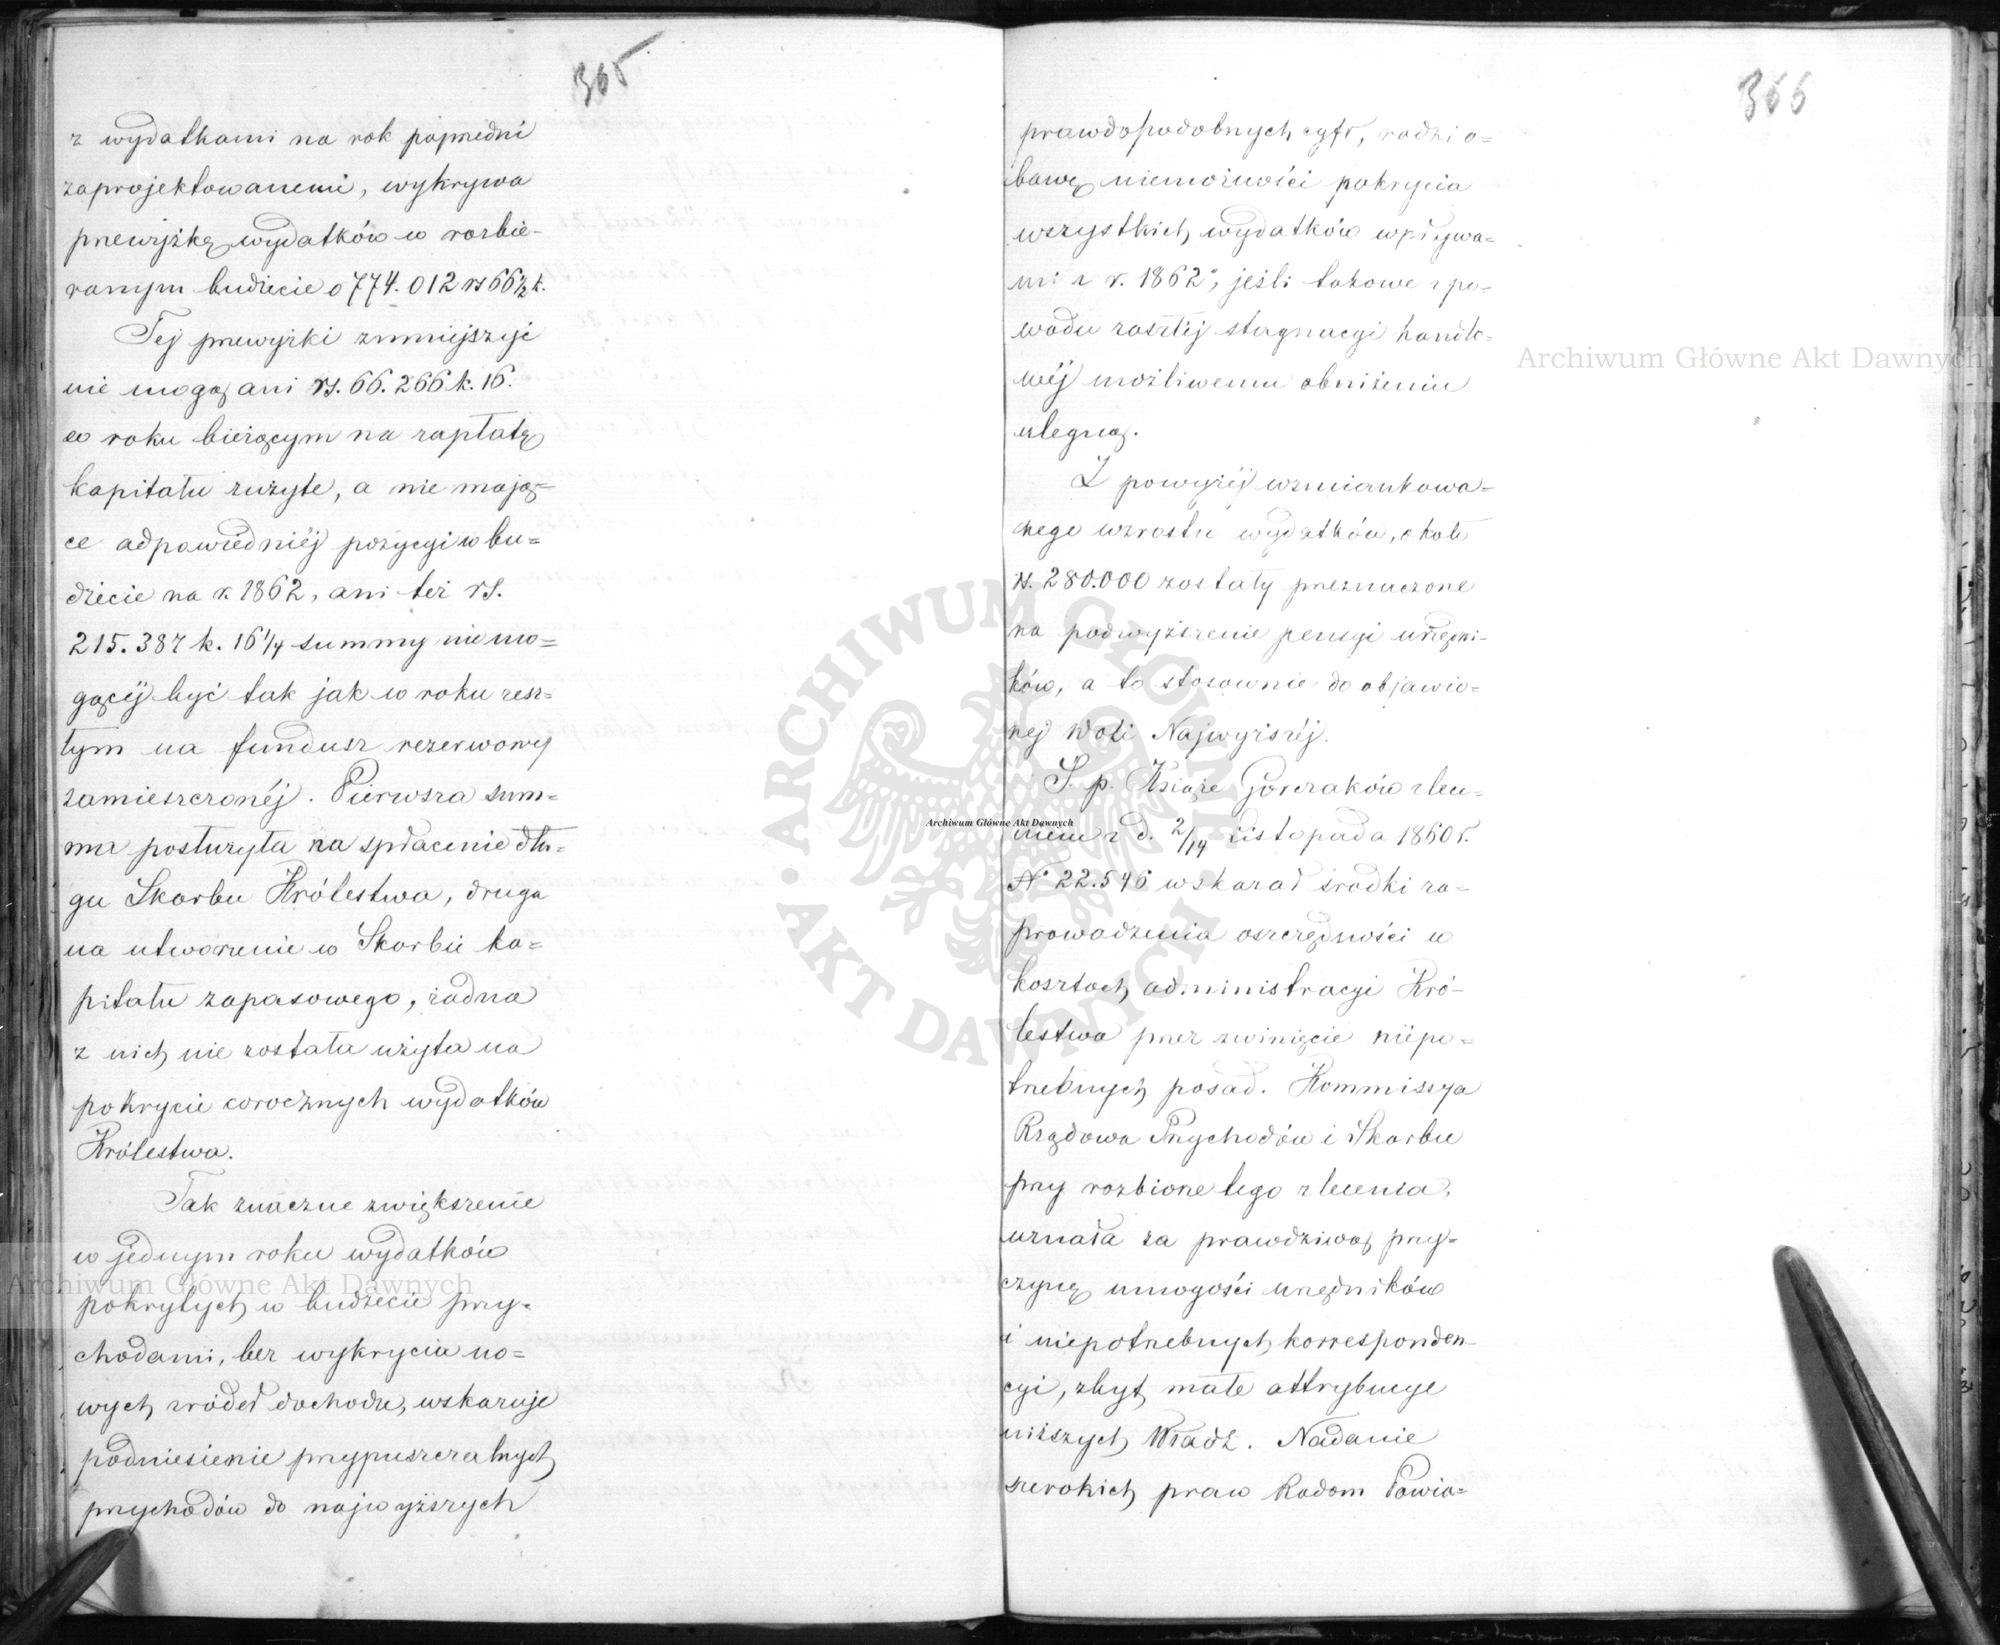 365
z wydatkami na rok poprzedni
zaprojektowanemi, wykrywa
przewyżkę wydatków w rozbie-
ranym budżecie o 774.012 rs 66½ k.
Tej przewyżki zmniejszyć
nie mogą ani rs. 66.266 k. 16.
w roku bieżącym na zapłatę
kapitału zużyte, a nie mają=
ce odpowiedniéj pozycyi w bu=
dżecie na r. 1862, ani też rs.
215.387 k. 16¼ summy nie mo=
gącéj być tak jak w roku zesz=
łym na fundusz rezerwowy
zamieszczonéj. Pierwsza sum=
ma posłużyła na spłacenie dłu=
gu Skarbu Królestwa, druga
na utworzenie w Skarbie ka=
pitału zapasowego, żadna
z nich nie została użyta na
pokrycie corocznych wydatków
Królestwa.
Tak znaczne zwiększenie
w jednym roku wydatków
pokrytych w budżecie przy-
chodami, bez wykrycia no=
wych źródeł dochodu, wskazuje
podniesienie przypuszczalnych
przychodów do najwyższych
366
prawdopodobnych cyfr, rodzi o=
bawę niemożności pokrycia
wszystkich wydatków wpływa=
mi z r. 1862, jeśli takowe z po=
wodu zaszłej stagnacyi handlo-
wéj możliwemu obniżeniu
ulegną.
Z powyżéj wzmiankowa=
nego wzrostu wydatków, około
rs. 280.000 zostały przeznaczone
na podwyższenie pensyi urzędni-
ków, a to stosownie do objawio=
nej Woli Najwyższéj.
Ś. p. Książe Gorczaków zlece-
niem z d. 2/14 Listopada 1860 r.
№ 22.546 wskazał środki za-
prowadzenia oszczędności w
kosztach administracyi Kró-
lestwa przez zwinięcie niepo=
trzebnych posad. Kommissya
Rządowa Przychodów i Skarbu
przy rozbiorze tego zlecenia,
uznała za prawdziwą przy=
czynę mnogości urzędników
i niepotrzebnych korresponden-
cyi, zbyt małe attrybucye
niższych Władz. Nadanie
szerokich praw Radom Powia=
Archiwum Główne Akt Dawnych
Archiwum Główne Akt Dawnych
Archiwum Główne Akt Dawnych
ARCHIWUM GŁÓWNE AKT DAWNYCH